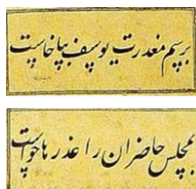 برسم معذرت یوسف بپا خاست
بمجلس حاضران را عذرها خواست